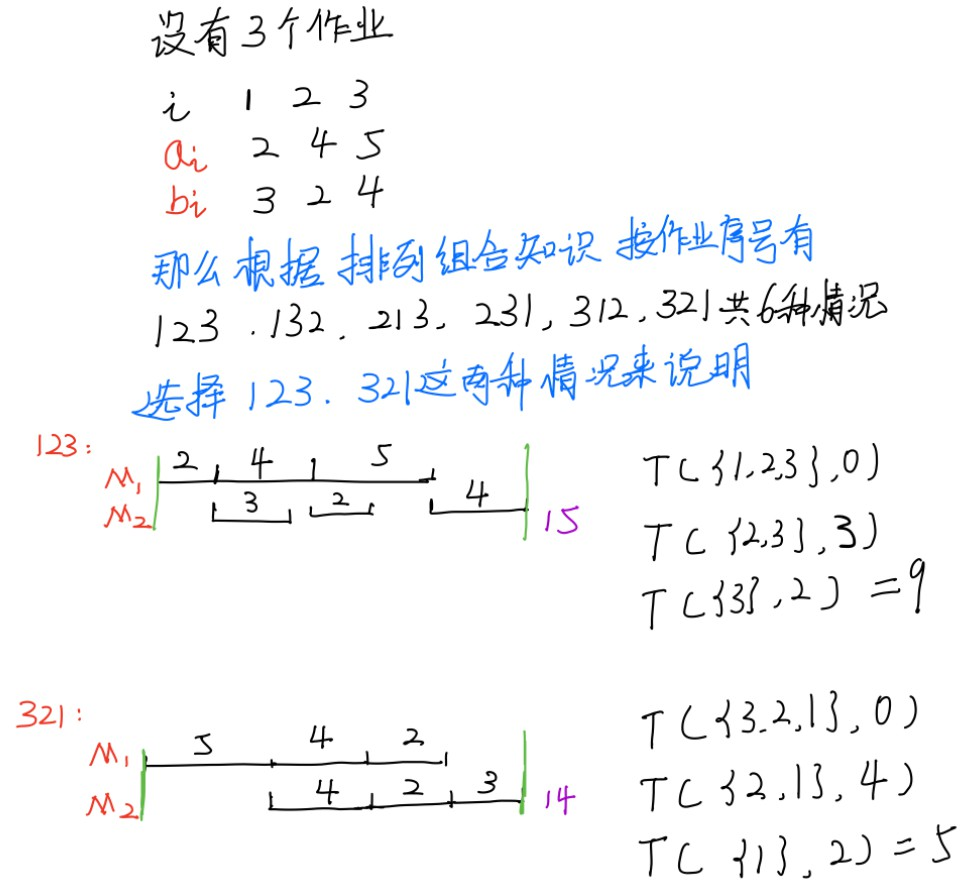 设有3个作业
i 1 2 3
ai 2 4 5
bi 3 2 4
那么根据排列组合知识 按作业序号有
123 . 132 . 213 , 231 , 312 . 321共6种情况
选择 123 . 321这两种情况来说明
123:
M1 2 4 5
M2 3 2 4 15
T({1,2,3},0)
T({2,3},3)
T({3},2) = 9
321:
M1 5 4 2
M2 4 2 3 14
T({3.2,1},0)
T({2,1},4)
T({1},2) = 5